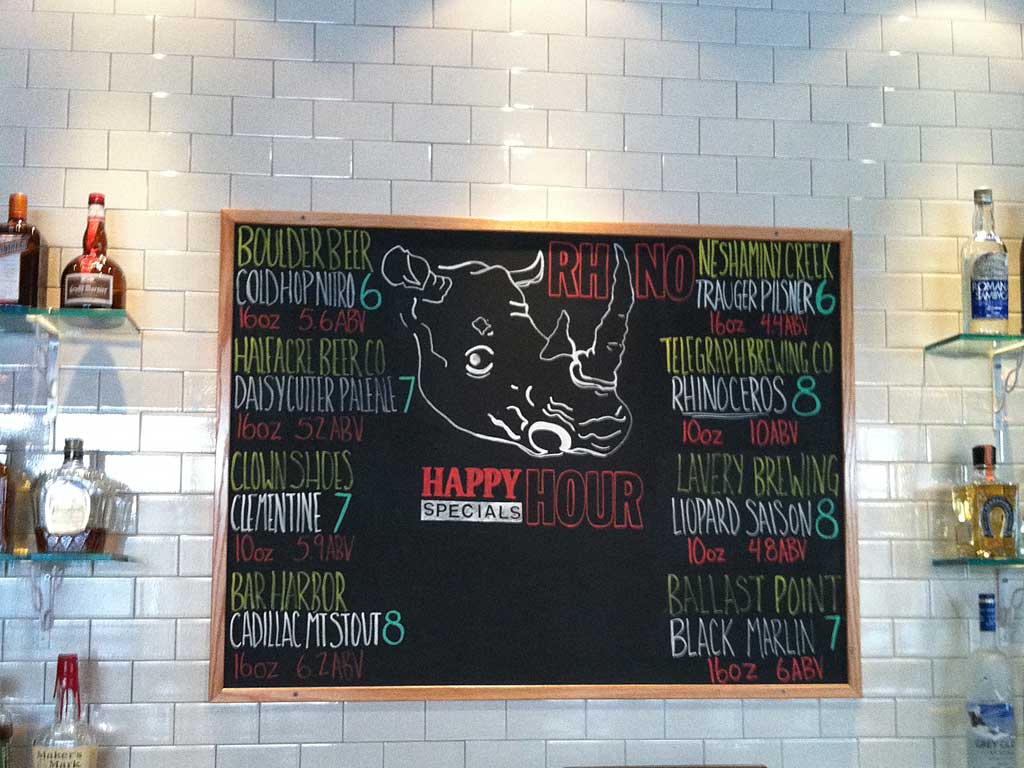 BOULDER BEER
COLD HOP NITRO 6
16oz 5.6ABV
HALFACRE BEER CO
DAISY CUTTER PALE ALE 7
16oz 5.2ABV
CLOWN SHOES
CLEMENTINE 7
10oz 5.9ABV
BAR HARBOR
CADILLAC MT STOUT 8
16oz 6.2ABV
RHINO
HAPPY HOUR
SPECIALS
NESHAMINY CREEK
TRAUGER PILSNER 6
16oz 4.4ABV
TELEGRAPH BREWING CO
RHINOCEROS 8
10oz 10ABV
LAVERY BREWING
LIOPARD SAISON 8
10oz 4.8ABV
BALLAST POINT
BLACK MARLIN 7
16oz 6ABV
Grand Marnier
ROMANA
SAMBUCA
Maker's
Mark
GREY GOOSE